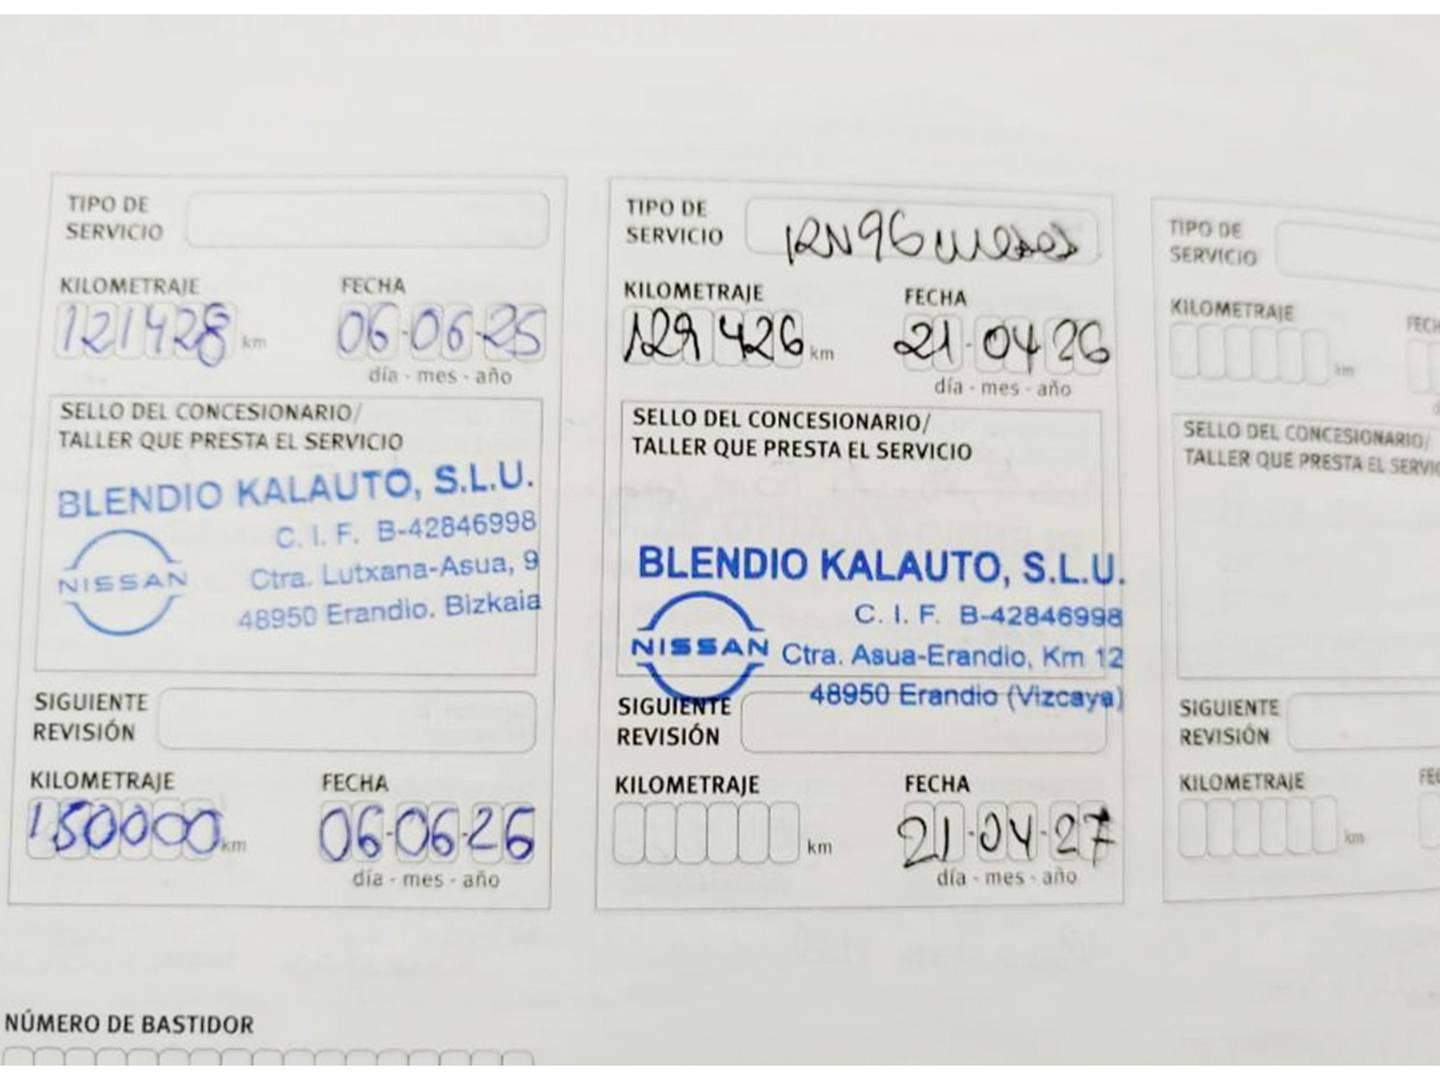 TIPO DE
SERVICIO
KILOMETRAJE FECHA
121428 km 06-06-25
día - mes - año
SELLO DEL CONCESIONARIO/
TALLER QUE PRESTA EL SERVICIO
BLENDIO KALAUTO, S.L.U.
C. I. F. B-42846998
NISSAN
Ctra. Lutxana-Asua, 9
48950 Erandio. Bizkaia
SIGUIENTE
REVISIÓN
KILOMETRAJE FECHA
150000 km 06-06-26
día - mes - año
TIPO DE
SERVICIO
RN96 meses
KILOMETRAJE FECHA
129426 km 21-04-26
día - mes - año
SELLO DEL CONCESIONARIO/
TALLER QUE PRESTA EL SERVICIO
BLENDIO KALAUTO, S.L.U.
C. I. F. B-42846998
NISSAN
Ctra. Asua-Erandio, Km 12
48950 Erandio (Vizcaya)
SIGUIENTE
REVISIÓN
KILOMETRAJE FECHA
km 21-04-27
día - mes - año
TIPO DE
SERVICIO
KILOMETRAJE FECH
km d
SELLO DEL CONCESIONARIO/
TALLER QUE PRESTA EL SERVIC
SIGUIENTE
REVISIÓN
KILOMETRAJE FE
km
NÚMERO DE BASTIDOR